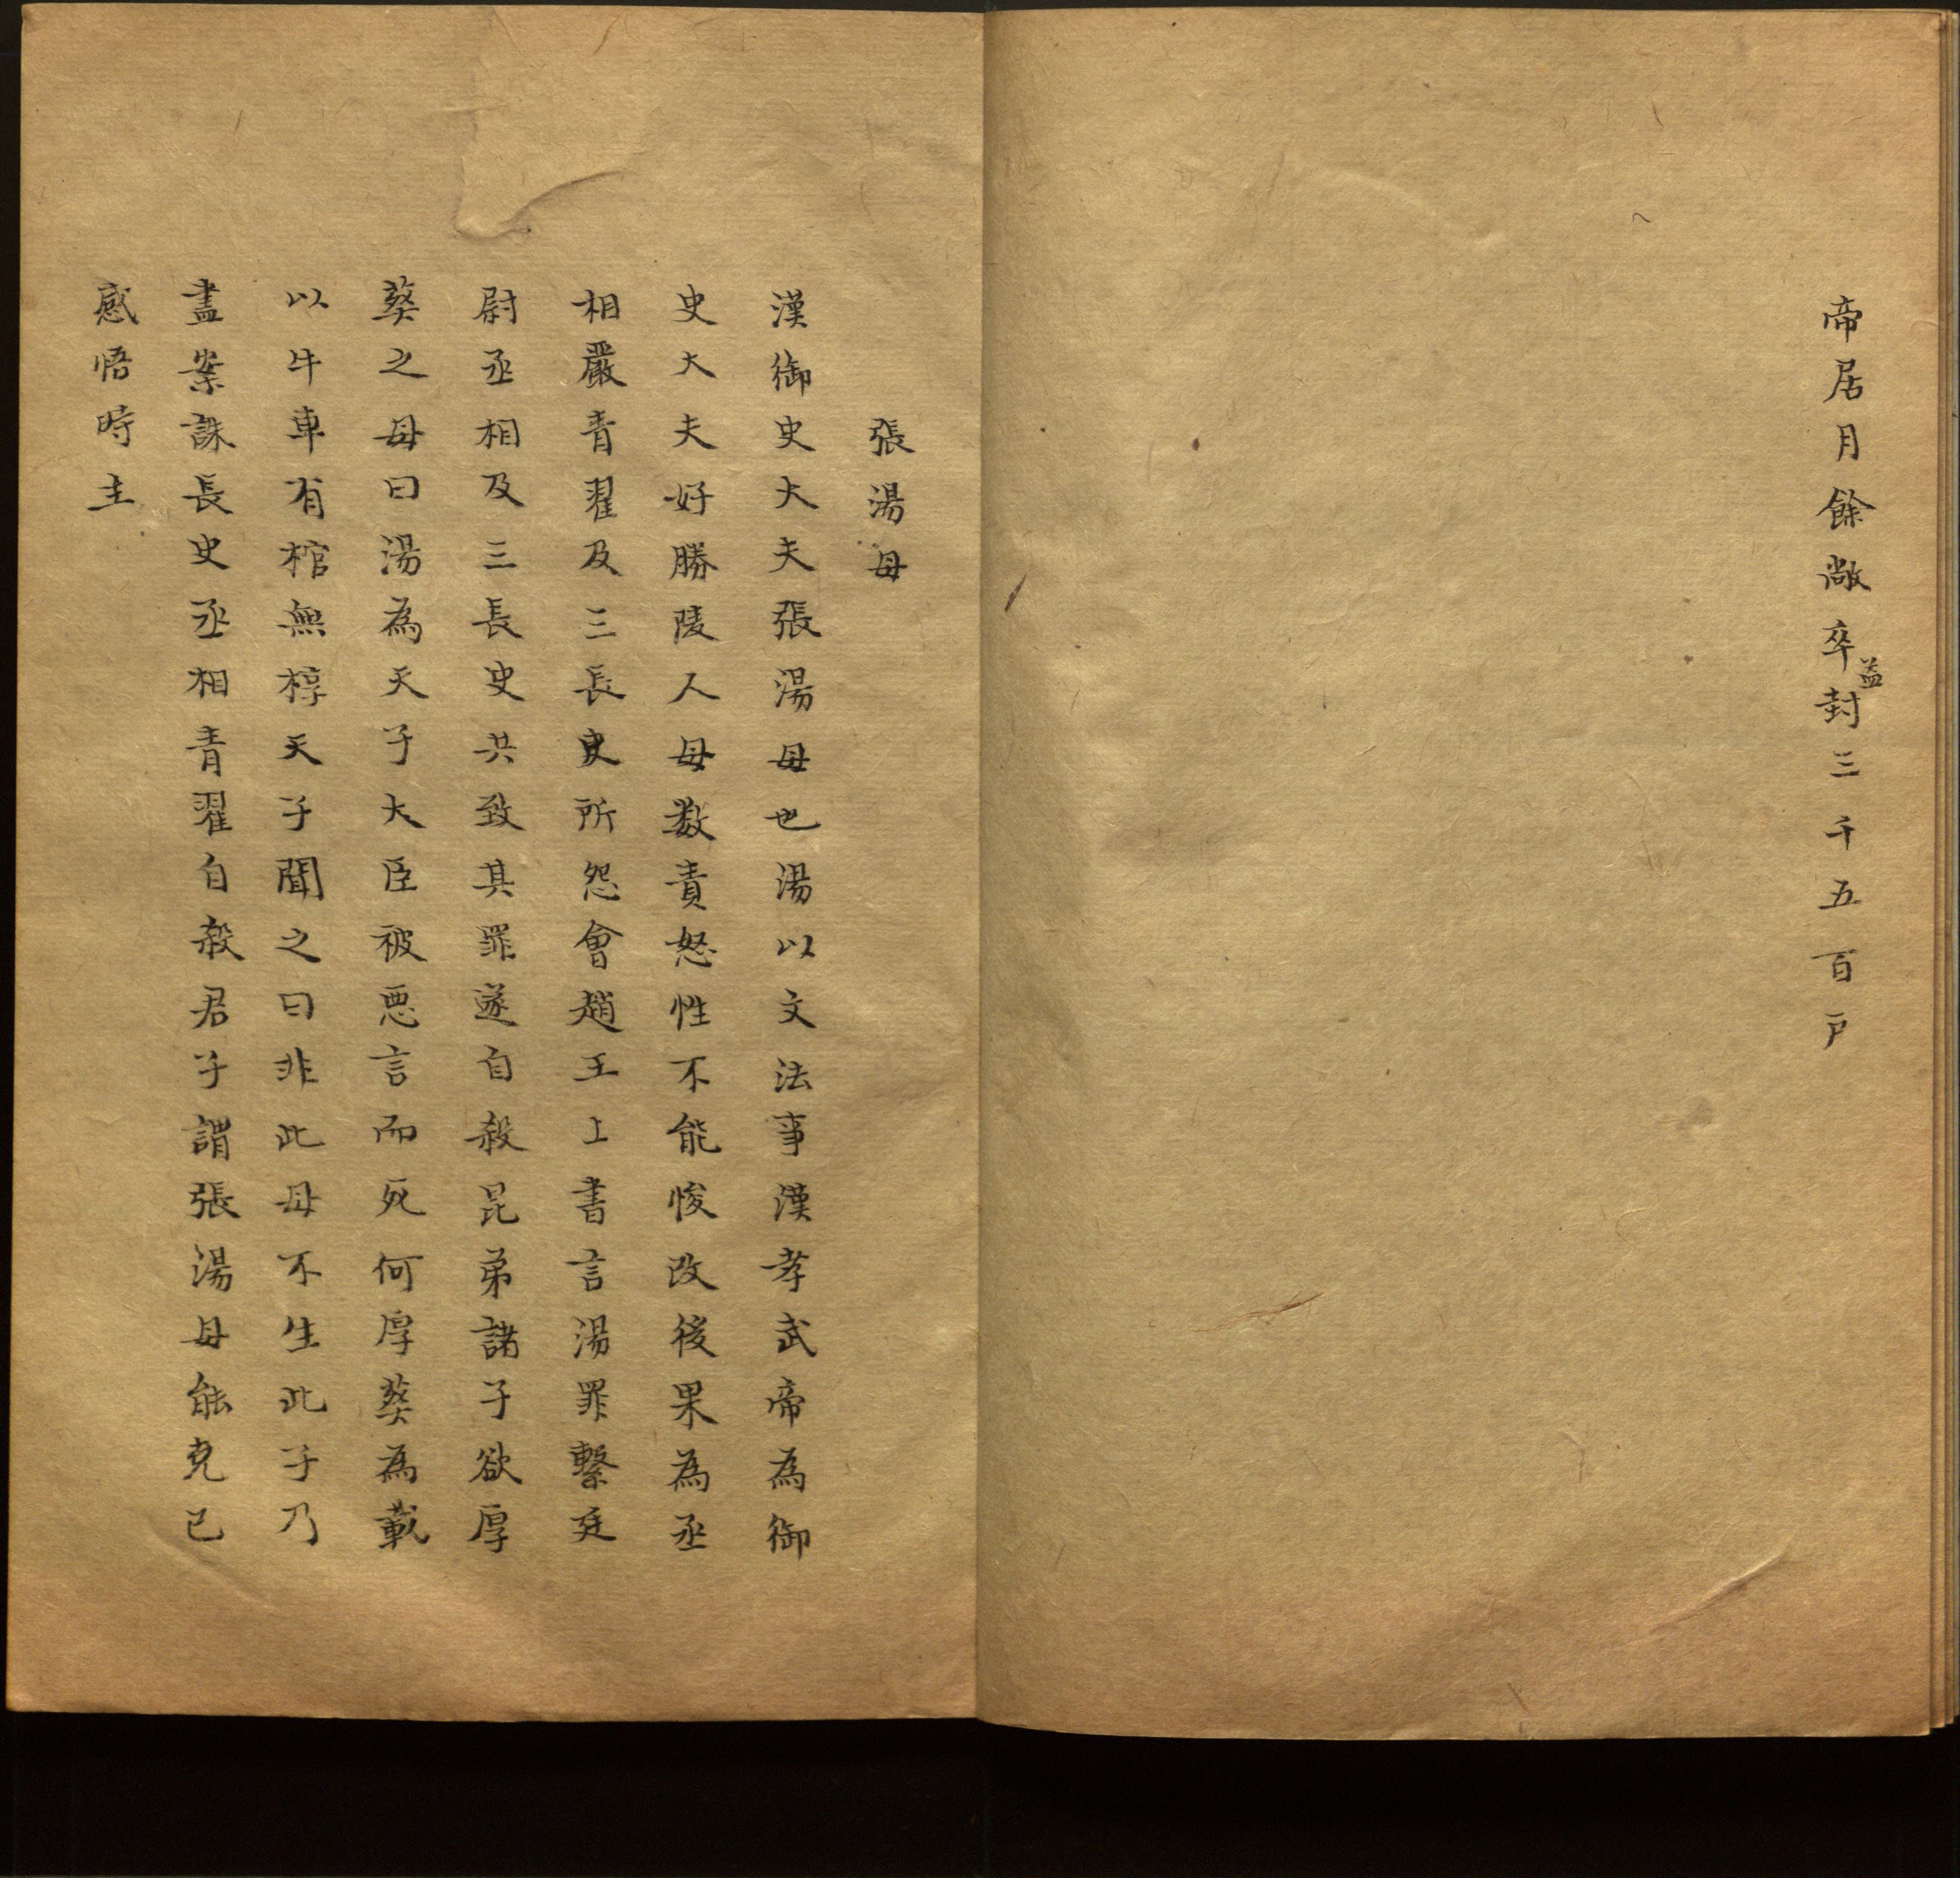 帝居月餘敞卒益封三千五百戶
張湯母
漢御史大夫張湯母也湯以文法事漢孝武帝為御
史大夫好勝陵人母数責怒性不能悛改後果為丞
相嚴青翟及三長史所怨會趙王上書言湯罪繫廷
尉丞相及三長史共致其罪遂自殺昆弟諸子欲厚
葬之母曰湯為天子大臣被惡言而死何厚葬為載
以牛車有棺無椁天子聞之曰非此母不生此子乃
盡案誅長史丞相青翟自殺君子謂張湯母能克己
感悟時主